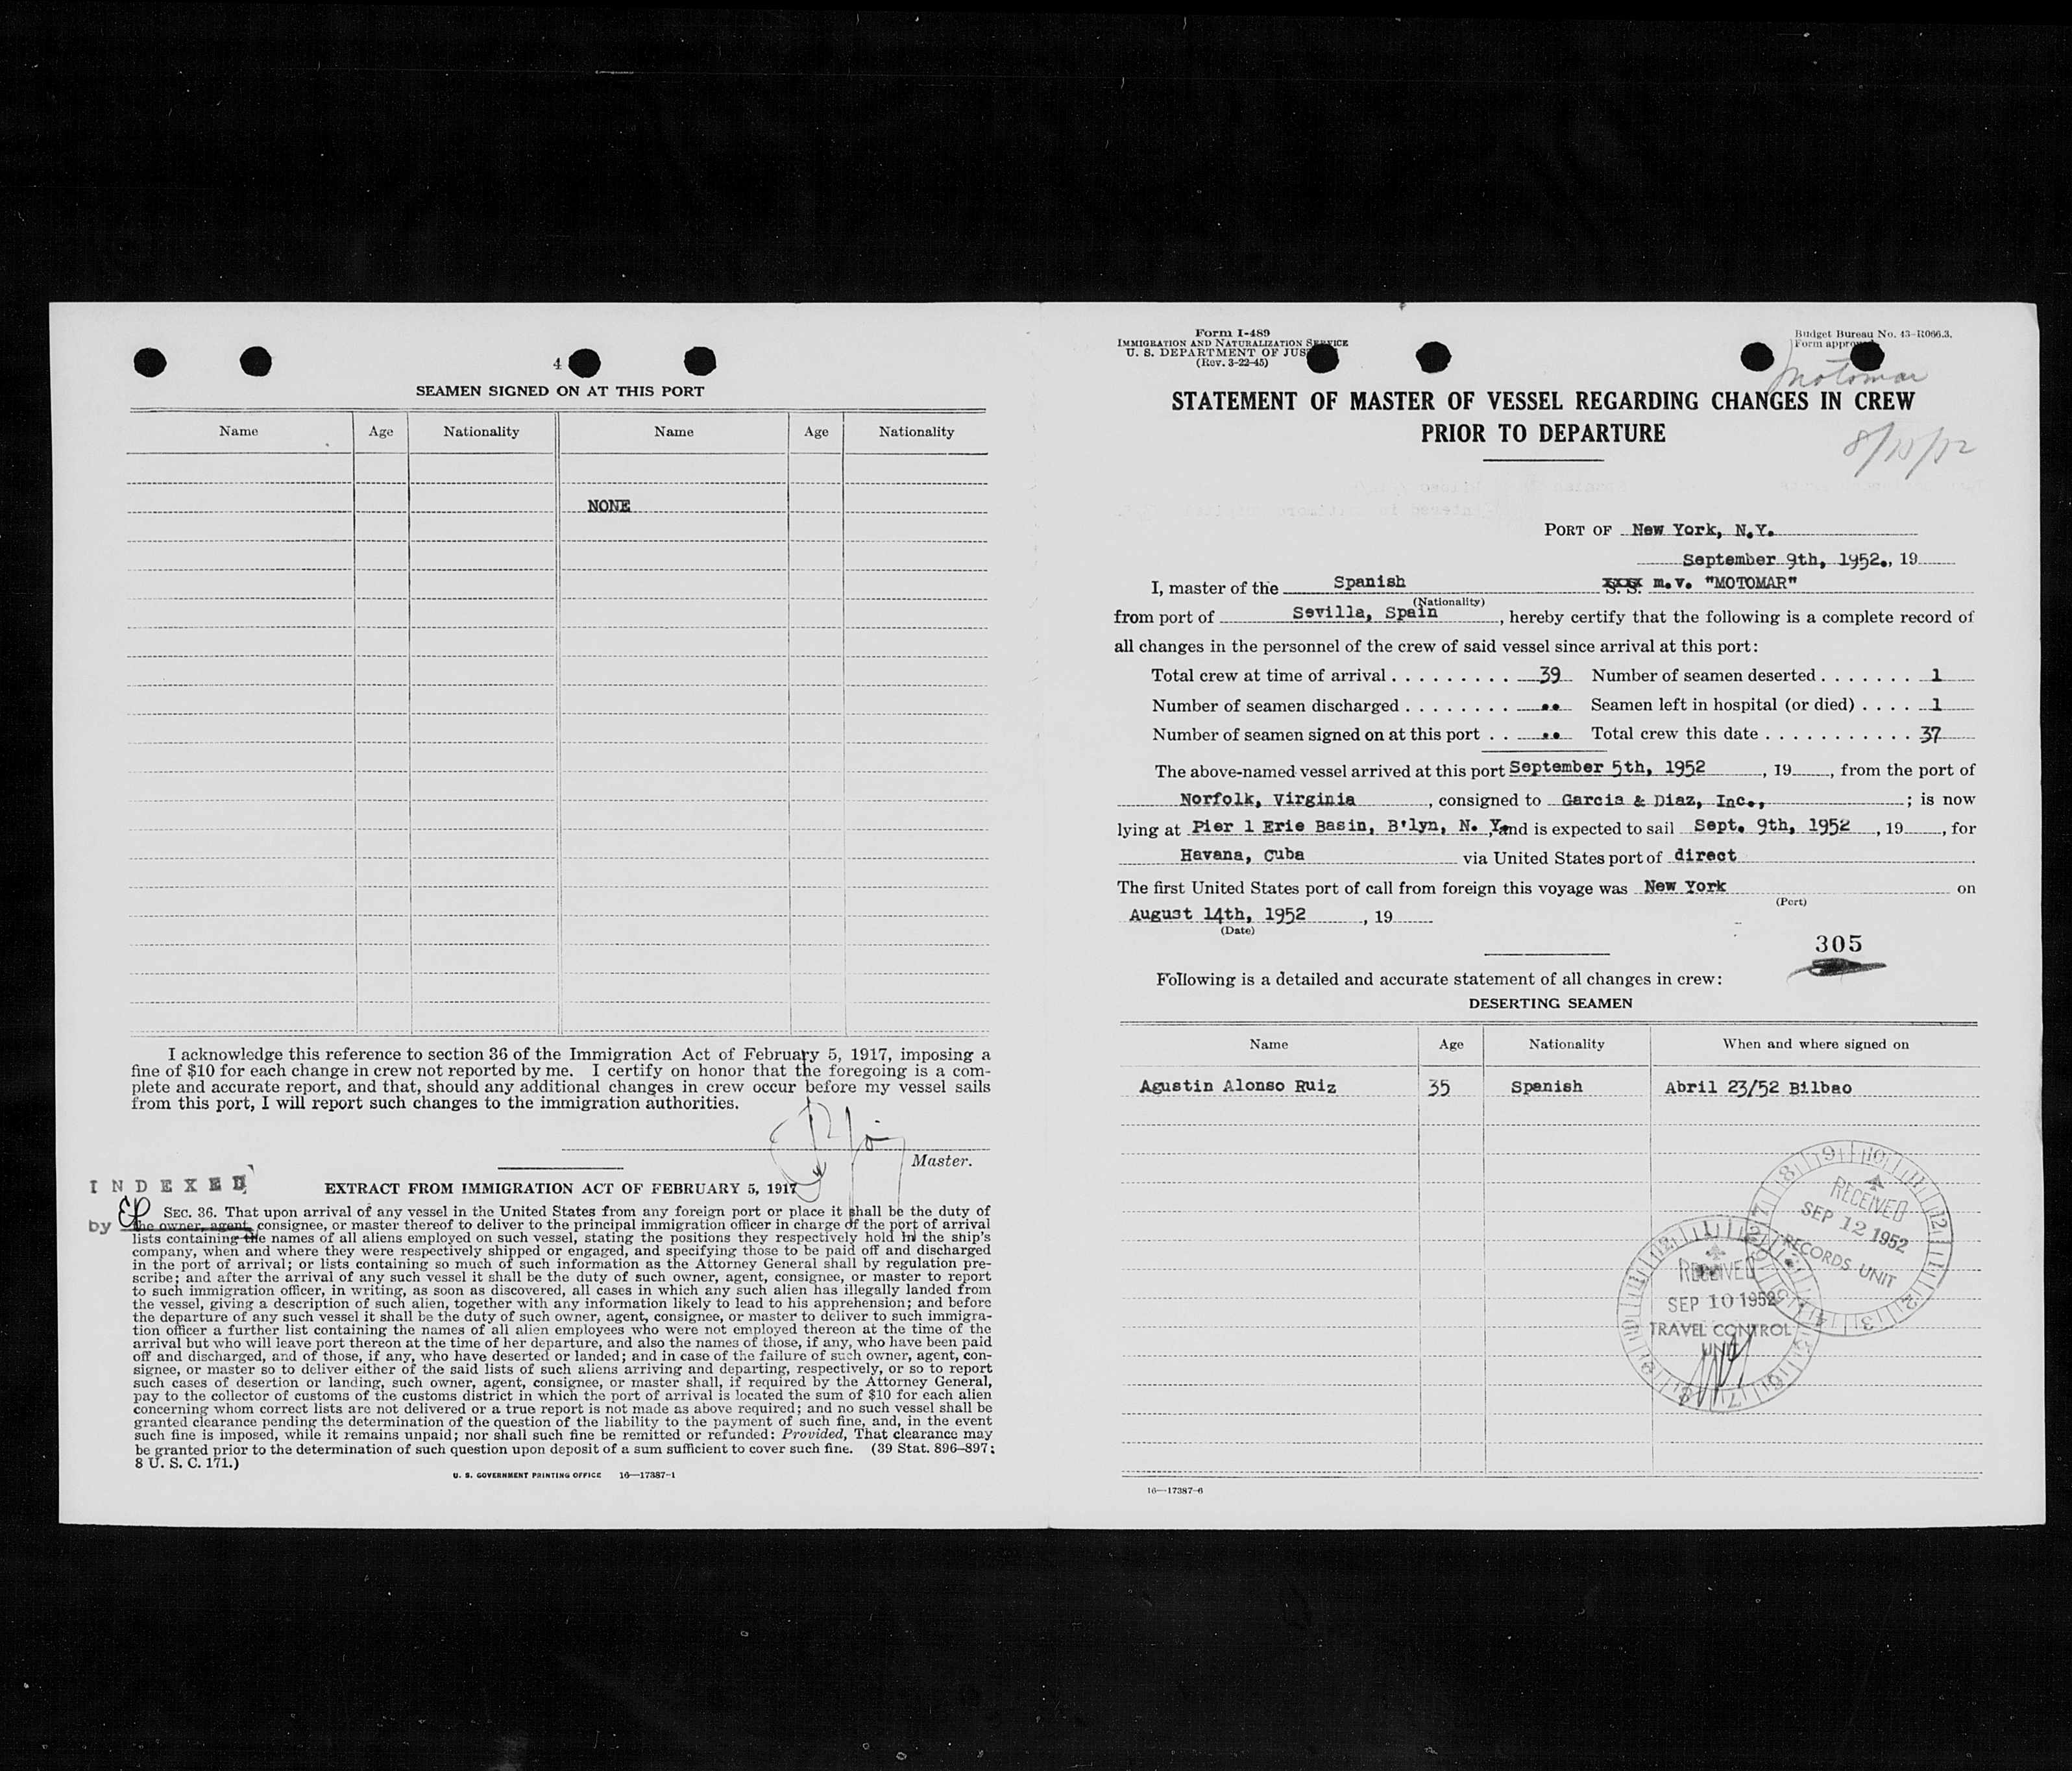 4
SEAMEN SIGNED ON AT THIS PORT
Name Age Nationality Name Age Nationality
NONE
I acknowledge this reference to section 36 of the Immigration Act of February 5, 1917, imposing a
fine of $10 for each change in crew not reported by me. I certify on honor that the foregoing is a com-
plete and accurate report, and that, should any additional changes in crew occur before my vessel sails
from this port, I will report such changes to the immigration authorities.
Master.
INDEXED
by EP
EXTRACT FROM IMMIGRATION ACT OF FEBRUARY 5, 1917
SEC. 36. That upon arrival of any vessel in the United States from any foreign port or place it shall be the duty of
the owner, agent, consignee, or master thereof to deliver to the principal immigration officer in charge of the port of arrival
lists containing the names of all aliens employed on such vessel, stating the positions they respectively hold in the ship's
company, when and where they were respectively shipped or engaged, and specifying those to be paid off and discharged
in the port of arrival; or lists containing so much of such information as the Attorney General shall by regulation pre-
scribe; and after the arrival of any such vessel it shall be the duty of such owner, agent, consignee, or master to report
to such immigration officer, in writing, as soon as discovered, all cases in which any such alien has illegally landed from
the vessel, giving a description of such alien, together with any information likely to lead to his apprehension; and before
the departure of any such vessel it shall be the duty of such owner, agent, consignee, or master to deliver to such immigra-
tion officer a further list containing the names of all alien employees who were not employed thereon at the time of the
arrival but who will leave port thereon at the time of her departure, and also the names of those, if any, who have been paid
off and discharged, and of those, if any, who have deserted or landed; and in case of the failure of such owner, agent, con-
signee, or master so to deliver either of the said lists of such aliens arriving and departing, respectively, or so to report
such cases of desertion or landing, such owner, agent, consignee, or master shall, if required by the Attorney General,
pay to the collector of customs of the customs district in which the port of arrival is located the sum of $10 for each alien
concerning whom correct lists are not delivered or a true report is not made as above required; and no such vessel shall be
granted clearance pending the determination of the question of the liability to the payment of such fine, and, in the event
such fine is imposed, while it remains unpaid; nor shall such fine be remitted or refunded: Provided, That clearance may
be granted prior to the determination of such question upon deposit of a sum sufficient to cover such fine. (39 Stat. 896–897;
8 U. S. C. 171.)
U. S. GOVERNMENT PRINTING OFFICE 16—17387-1
Form I-489
IMMIGRATION AND NATURALIZATION SERVICE
U. S. DEPARTMENT OF JUS
(Rev. 3-22-45)
Budget Bureau No. 43-R066.3.
Form approv
Motomar
STATEMENT OF MASTER OF VESSEL REGARDING CHANGES IN CREW
PRIOR TO DEPARTURE
PORT OF New York, N.Y.
September 9th, 1952., 19
I, master of the Spanish S.S. m.v. "MOTOMAR"
(Nationality)
from port of Sevilla, Spain, hereby certify that the following is a complete record of
all changes in the personnel of the crew of said vessel since arrival at this port:
Total crew at time of arrival . . . . . . . . . 39 Number of seamen deserted . . . . . . . 1
Number of seamen discharged . . . . . . . . .. Seamen left in hospital (or died) . . . . 1
Number of seamen signed on at this port . . .. Total crew this date . . . . . . . . . . . 37
The above-named vessel arrived at this port September 5th, 1952, 19, from the port of
Norfolk, Virginia, consigned to Garcia & Diaz, Inc.,; is now
lying at Pier 1 Erie Basin, B'lyn, N. Y. and is expected to sail Sept. 9th, 1952, 19, for
Havana, Cuba via United States port of direct
The first United States port of call from foreign this voyage was New York on
(Port)
August 14th, 1952, 19
(Date)
305
Following is a detailed and accurate statement of all changes in crew:
DESERTING SEAMEN
Name Age Nationality When and where signed on
Agustin Alonso Ruiz 35 Spanish Abril 23/52 Bilbao
RECEIVED
SEP 12 1952
RECORDS UNIT
RECEIVED
SEP 10 1952
TRAVEL CONTROL
UNIT
16—17387-6